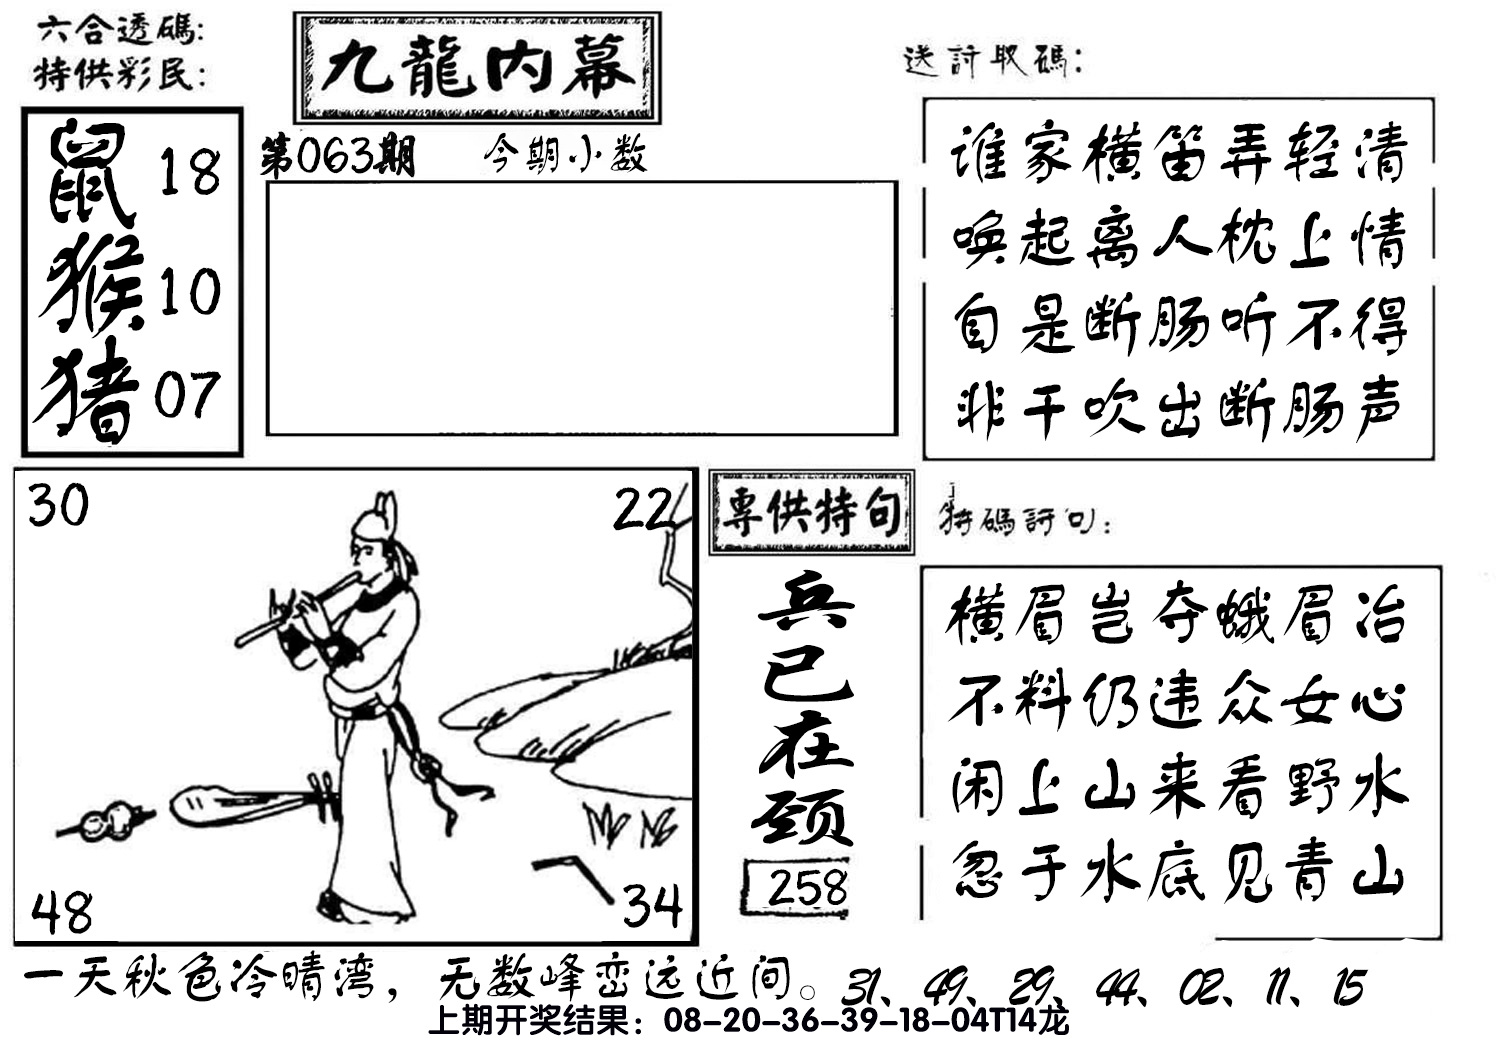 六合透碼:
特供彩民:
九龍內幕
送詩取碼:
鼠 18
猴 10
猪 07
第063期 今期小数
谁家横笛弄轻清
唤起离人枕上情
自是断肠听不得
非干吹出断肠声
30
22
48
34
專供特句
兵已在颈
258
特碼詩句:
横眉岂夺蛾眉冶
不料仍违众女心
闲上山来看野水
忽于水底见青山
一天秋色冷晴湾，无数峰峦远近间。31、49、29、44、02、11、15
上期开奖结果：08-20-36-39-18-04T14龙